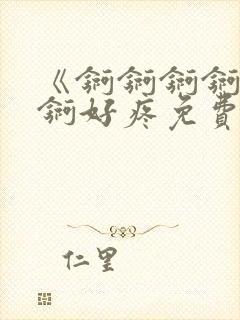 《锕锕锕锕
锕好疼免費
仁里